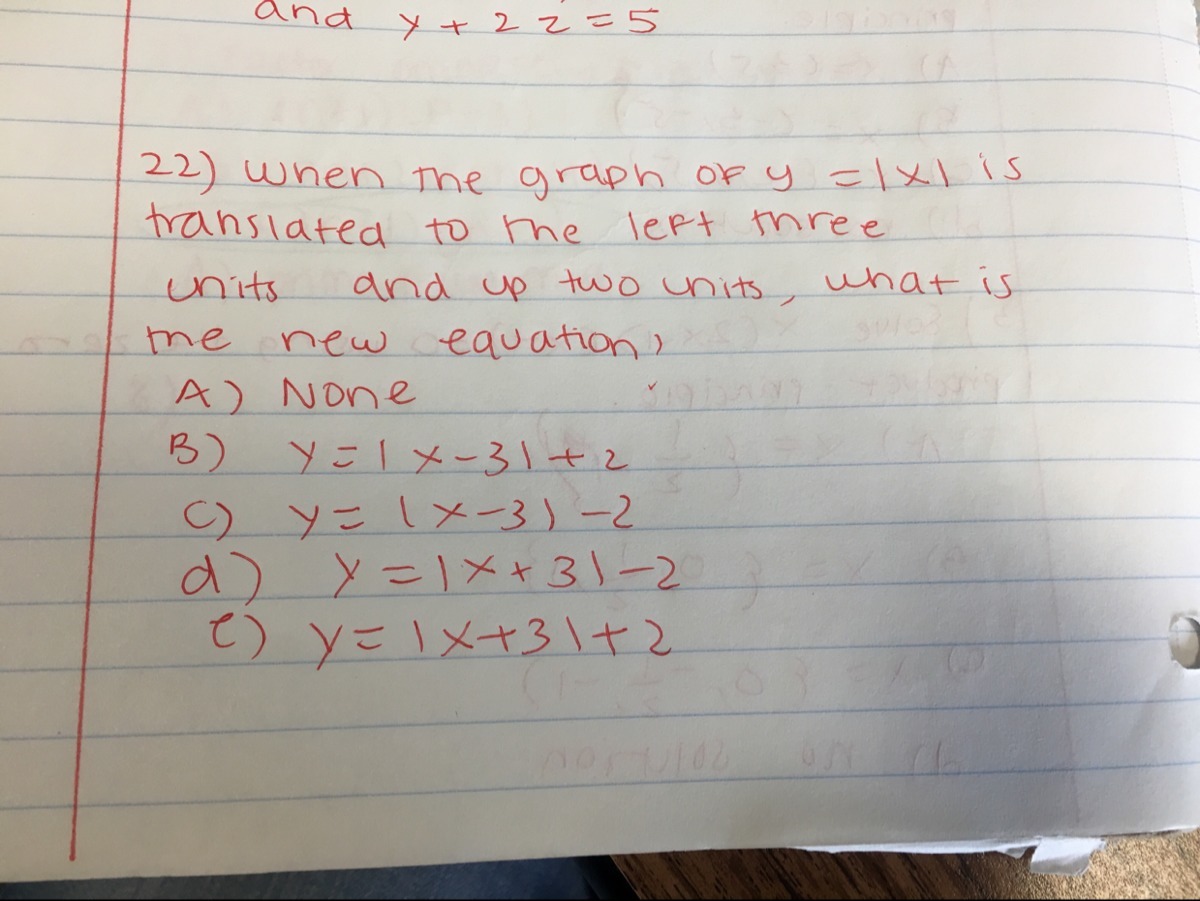 and y + 2z = 5
22) when the graph of y = |x| is
translated to the left three
units and up two units, what is
the new equation,
A) None
B) y = |x-3| + 2
C) y = |x-3| - 2
d) y = |x+3| - 2
e) y = |x+3| + 2